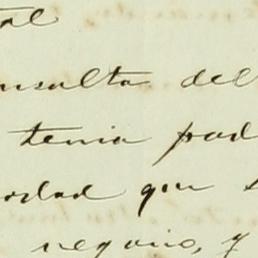 tal
nsulta del
tenia pod
dad que
negocio, y